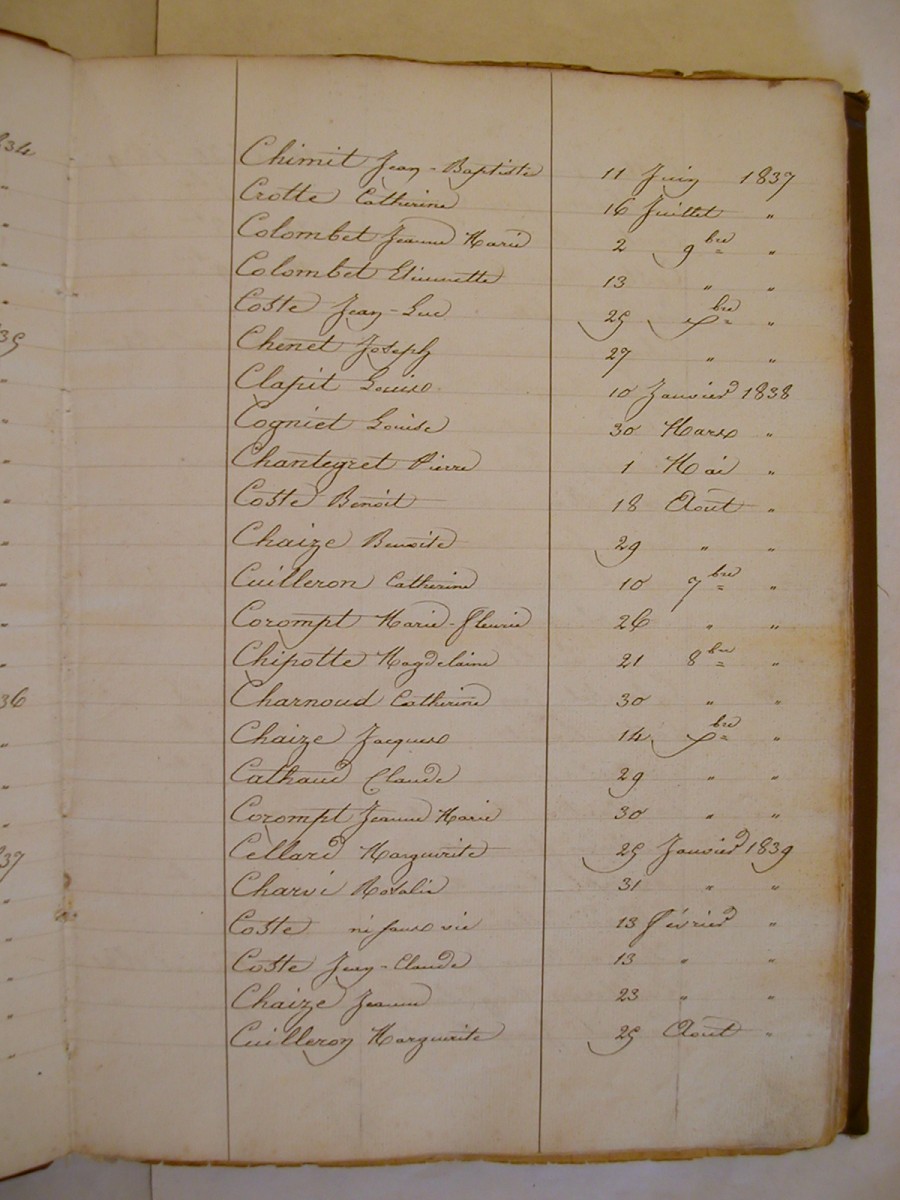 834
"
"
"
"
835
"
"
"
"
"
"
"
"
836
"
"
"
837
"
"
"
"
"
Chimit Jean-Baptiste 11 Juin 1837
Crotte Catherine 16 Juillet "
Colombet Jeanne Marie 2 9bre "
Colombet Etiennette 13 " "
Coste Jean-Luc 25 Xbre "
Chenet Joseph 27 " "
Clapit Louise 10 Janvier 1838
Cogniet Louise 30 Mars "
Chantegret Pierre 1 Mai "
Coste Benoit 18 Août "
Chaize Benoite 29 " "
Cuilleron Catherine 10 7bre "
Corompt Marie-Fleurie 26 " "
Chipotte Magdelaine 21 8bre "
Charnoud Catherine 30 " "
Chaize Jacques 14 Xbre "
Cathaud Claude 29 " "
Corompt Jeanne Marie 30 " "
Cellard Marguerite 25 Janvier 1839
Charvi Rosalie 31 " "
Coste né sans vie 13 février "
Coste Jean-Claude 13 " "
Chaize Jeanne 23 " "
Cuilleron Marguerite 25 Août "